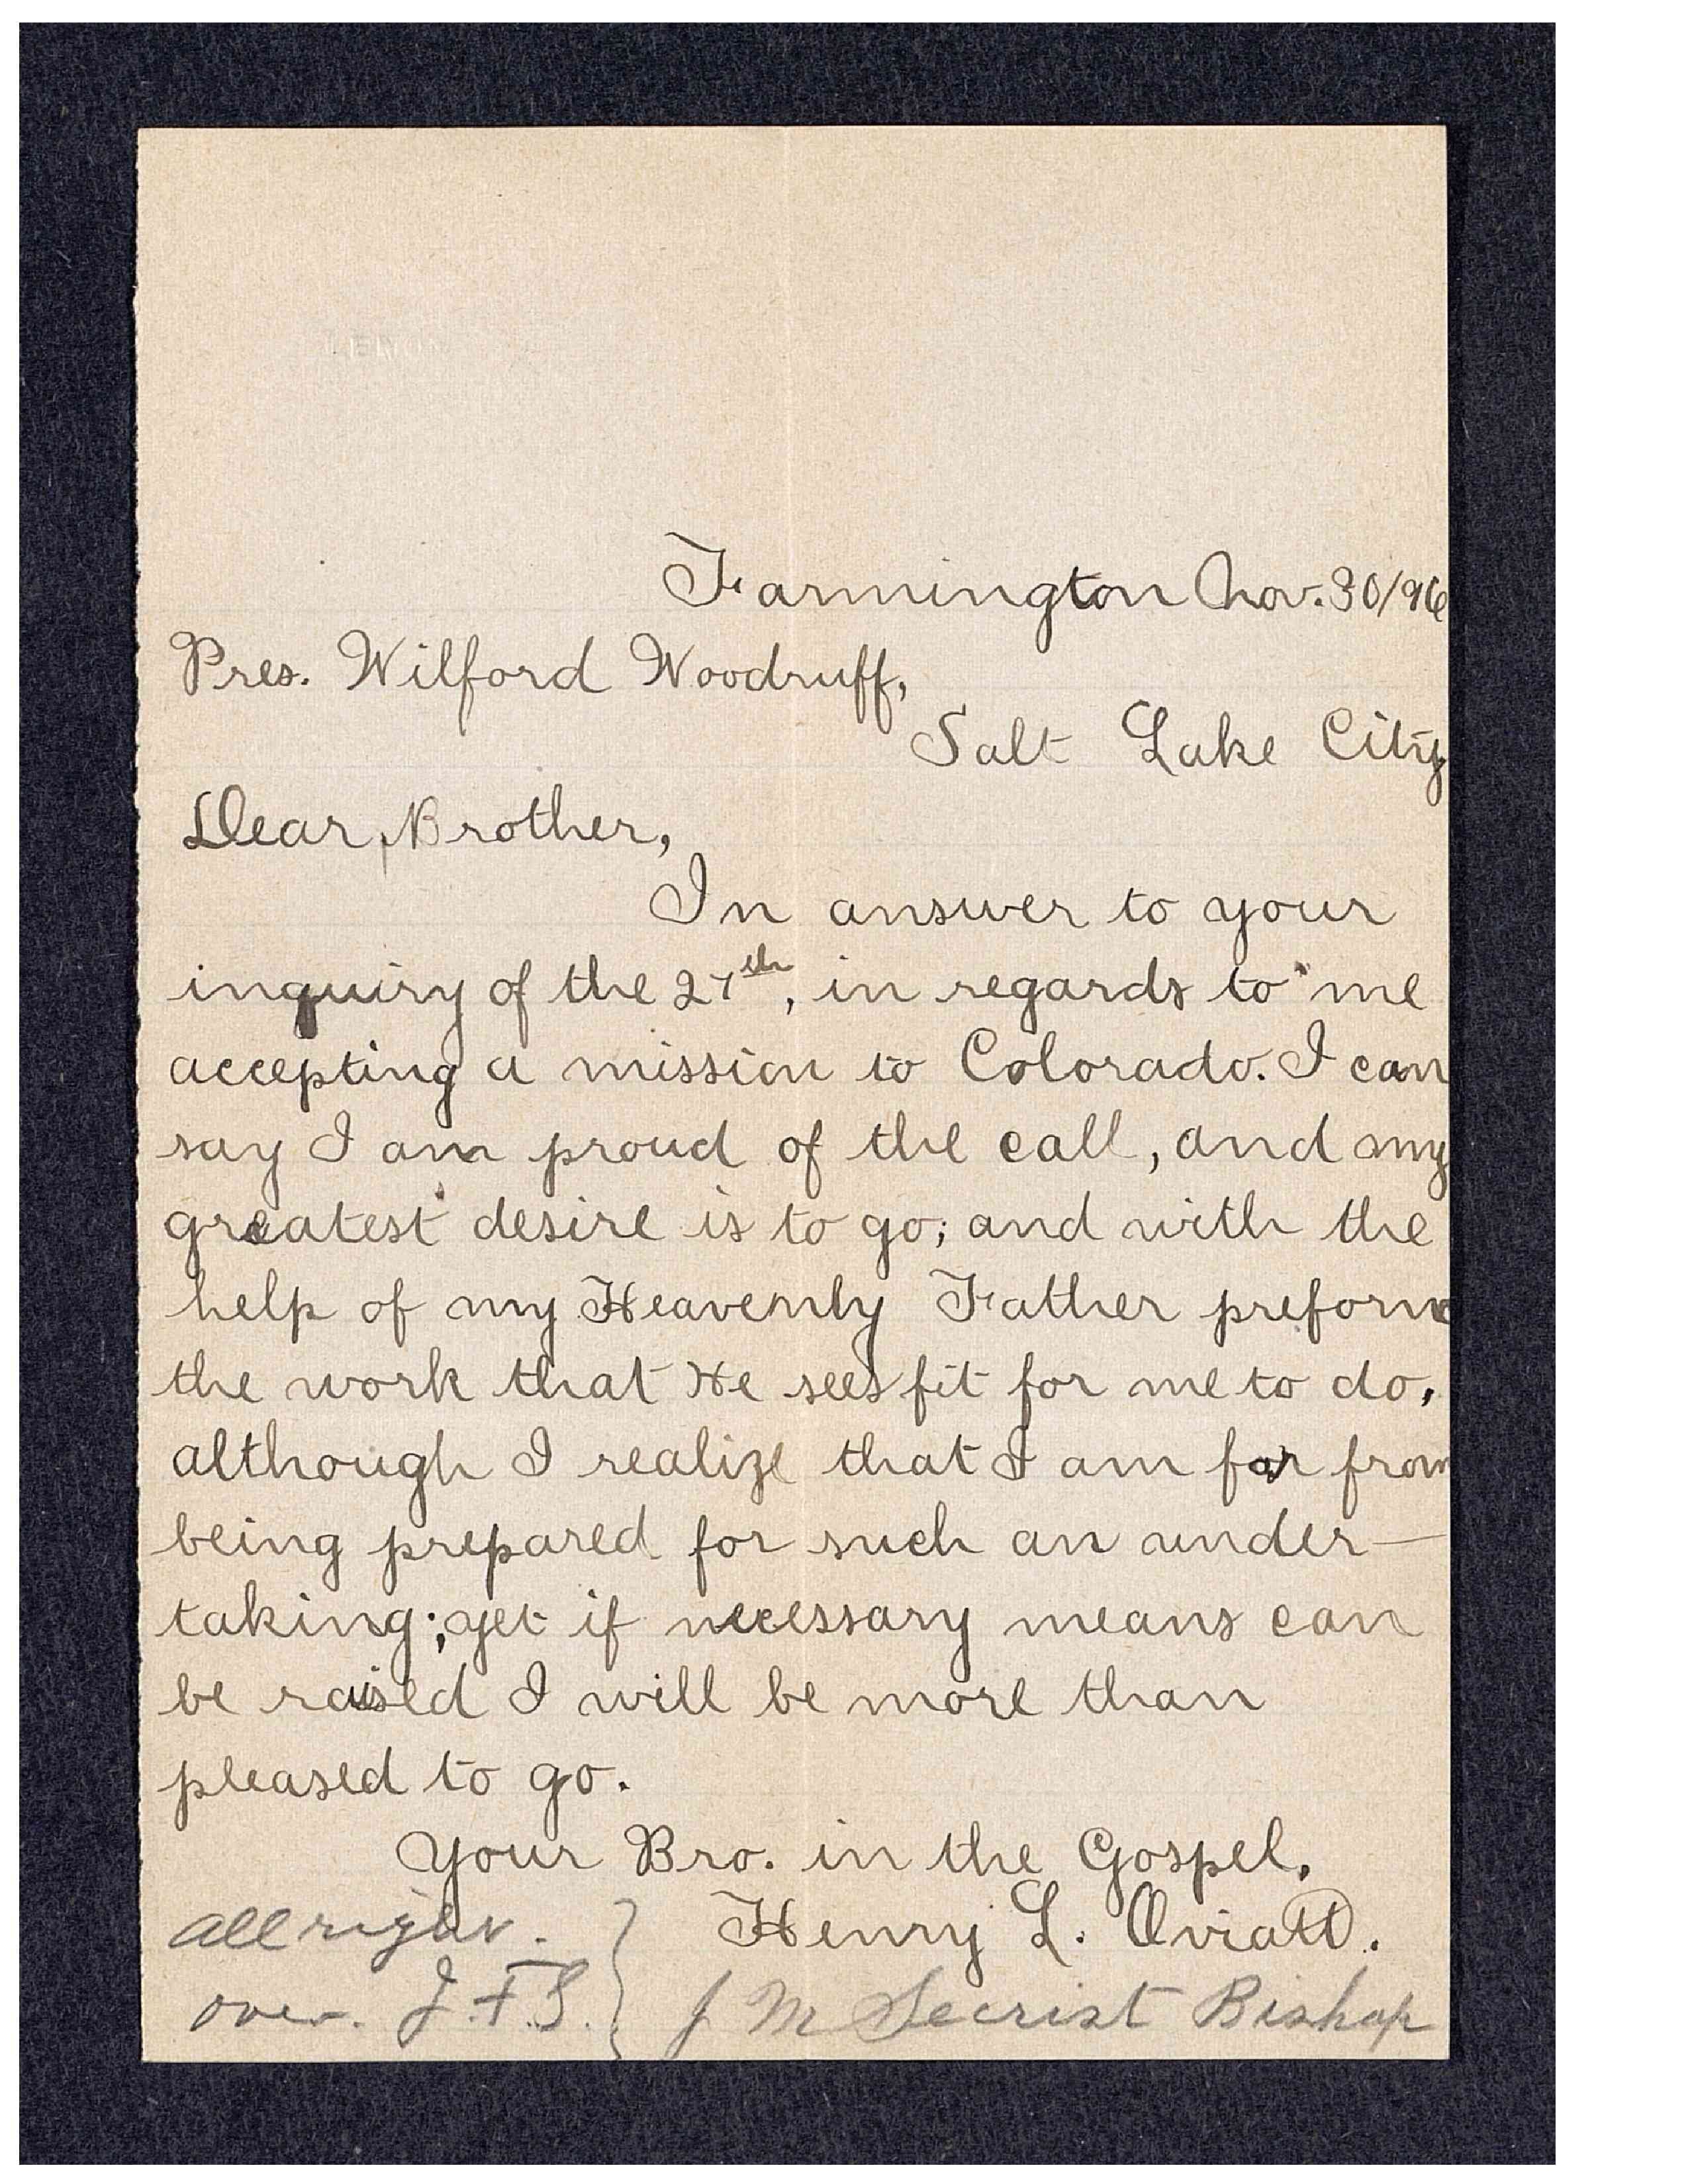 Farmington Nov. 30/96
Pres. Wilford Woodruff,
Salt Lake City
Dear Brother,
In answer to your
inquiry of the 27th, in regards to me
accepting a mission to Colorado. I can
say I am proud of the call, and my
greatest desire is to go; and with the
help of my Heavenly Father preform
the work that He sees fit for me to do,
although I realize that I am far from
being prepared for such an under-
taking; yet if necessary means can
be raised I will be more than
pleased to go.
Your Bro. in the Gospel,
Henry L. Oviatt.
all right.
over. J. F. S. } J M Secrist Bishop